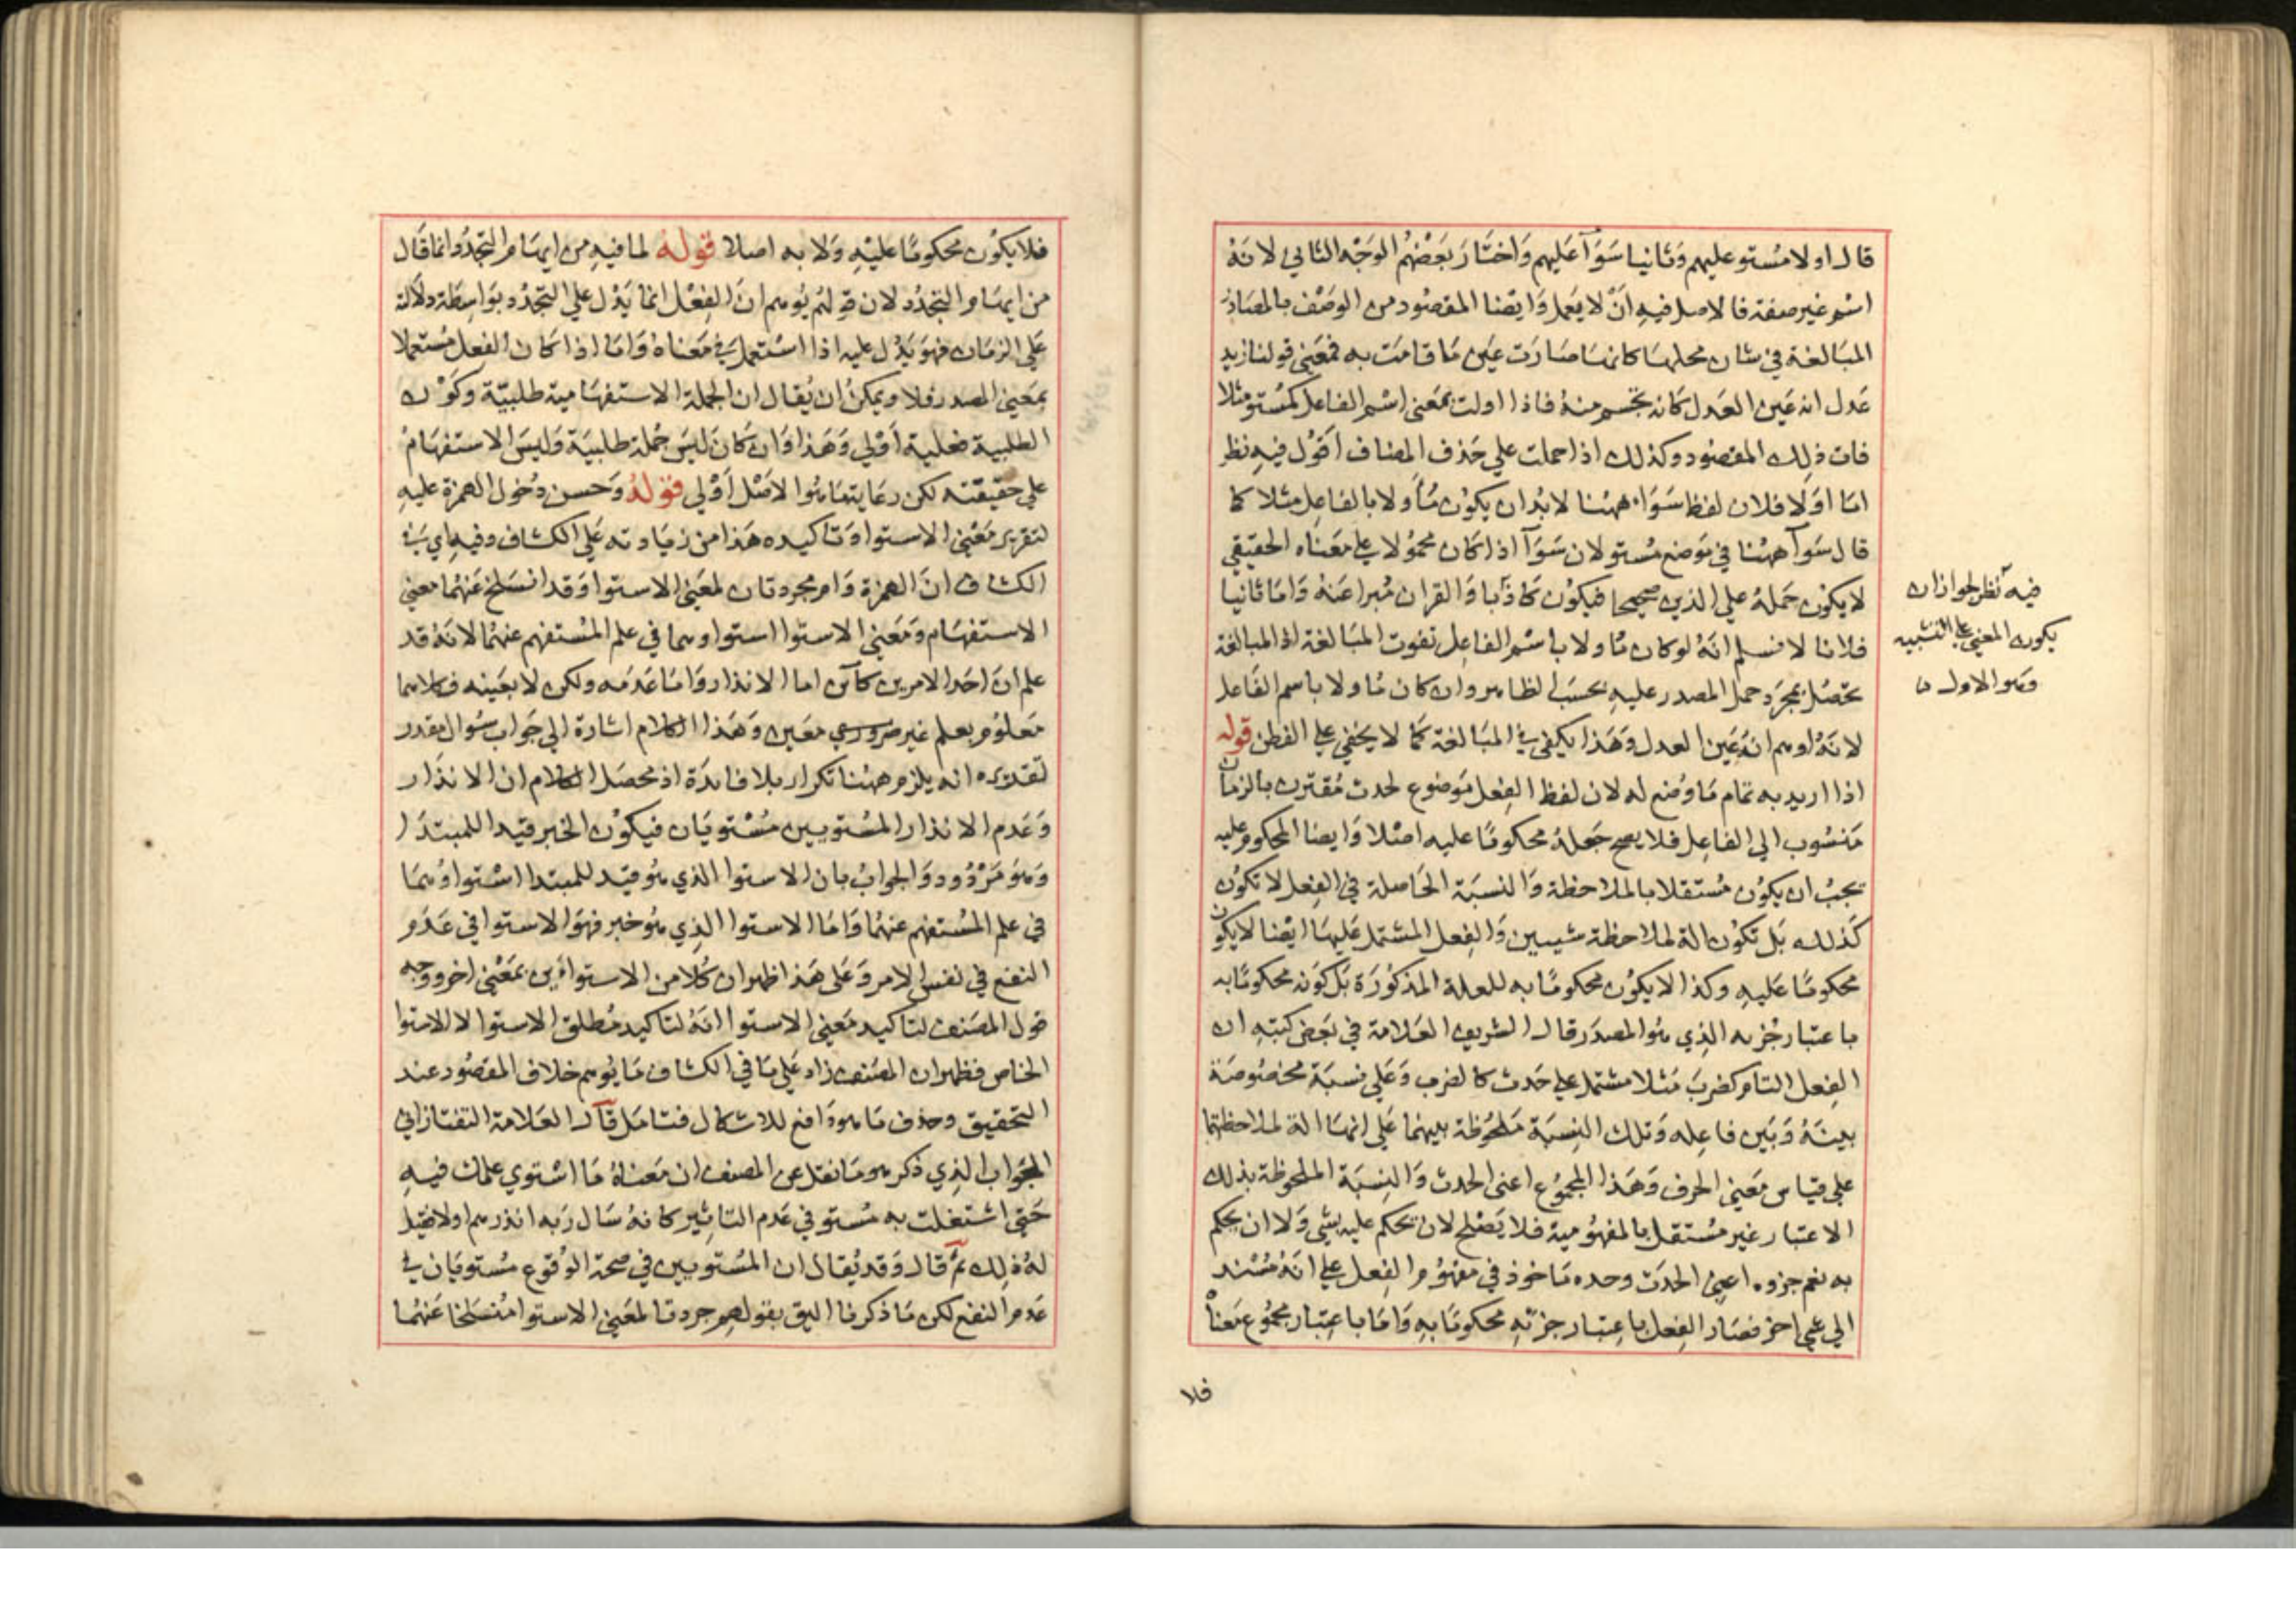 قال اولا مستو عليهم وثانيا سوآ عليهم واختار بعضهم الوجه الثاني لانه
اسم غير صفة فالاصل فيه ان لا يعمل وايضا المقصود من الوصف بالمصادر
المبالغة في شان محلها كانها صارت عين ما قامت به فمعني قولنا زيد
عدل انه عين العدل كانه تجسم منه فاذا اولت بمعني اسم الفاعل كمستو مثلا
فات ذلك المقصود وكذلك اذا حملت علي حذف المضاف اقول فيه نظر
اما اولا فلان لفظ سواء ههنا لا بد ان يكون مأولا بالفاعل مثلا كما
قال سوآ ههنا في موضع مستو لان سوآ اذا كان محمولا علي معناه الحقيقي
لا يكون حمله علي الذين صحيحا فيكون كاذبا والقران مبرا عنه واما ثانيا
فلانا لا نسلم انه لو كان مأولا باسم الفاعل تفوت المبالغة اذ المبالغة
تحصل بمجرد حمل المصدر عليه بحسب الظاهر وان كان مأولا باسم الفاعل
لانه اوهم انه عين العدل وهذا يكفي في المبالغة كما لا يخفي علي الفطن قوله
اذا اريد به تمام ما وضع له لان لفظ الفعل موضوع لحدث مقترن بالزمان
منسوب الي الفاعل فلا يصح جعله محكوما عليه اصلا وايضا المحكوم عليه
يجب ان يكون مستقلا بالملاحظة والنسبة الحاصلة في الفعل لا تكون
كذلك بل تكون الة لملاحظة شيئين والفعل المشتمل عليها ايضا لا يكون
محكوما عليه وكذا لا يكون محكوما به للعلة المذكورة بل كونه محكوما به
باعتبار جزئه الذي هو المصدر قال الشريف العلامة في بعض كتبه ان
الفعل التام كضرب مثلا مشتمل علي حدث كالضرب وعلي نسبة مخصوصة
بينه وبين فاعله وتلك النسبة ملحوظة بينهما علي انها الة لملاحظتهما
علي قياس معني الحرف وهذا المجموع اعني الحدث والنسبة الملحوظة بذلك
الاعتبار غير مستقل بالمفهومية فلا يصلح لان يحكم عليه بشي ولا ان يحكم
به نعم جزوه اعني الحدث وحده ماخوذ في مفهوم الفعل علي انه مسند
الي شي اخر فصار الفعل باعتبار جزئه محكوما به واما باعتبار مجموع معناه
فلا
فيه نظر لجواز ان
يكون المعني علي التشبيه
وهو الاول
فلا يكون محكوما عليه ولا به اصلا قوله لما فيه من ايهام التجدد وانما قال
من ايهام التجدد لان قولهم يوهم ان الفعل انما يدل علي التجدد بواسطة دلالة
علي الزمان فهو يدل عليه اذا استعمل في معناه واما اذا كان الفعل مستعملا
بمعني المصدر فلا ويمكن ان يقال ان الجملة الاستفهامية طلبية وكون
الطلبية فعلية اولي وهذا وان كان ليس جملة طلبية وليس الاستفهام
علي حقيقته لكن رعاية ما هو الاصل اولي قوله وحسن دخول الهمزة عليه
لتقرير معني الاستوا وتاكيده هذا من زياداته علي الكشاف وفيه اي في
الكشاف ان الهمزة وام مجردتان لمعني الاستوا وقد انسلخ عنهما معني
الاستفهام ومعني الاستوا استواوهما في علم المستفهم عنهما لانه قد
علم ان احد الامرين كائن اما الانذار واما عدمه ولكن لا بعينه فكلاهما
معلوم بعلم غير معين وهذا الكلام اشارة الي جواب سوال مقدر
تقديره انه يلزم ههنا تكرار بلا فائدة اذ محصل الكلام ان الانذار
وعدم الانذار المستويين مستويان فيكون الخبر قيدا للمبتدا
وهو مردود والجواب بان الاستوا الذي هو قيد للمبتدا استواوهما
في علم المستفهم عنهما واما الاستوا الذي هو خبر فهو الاستوا في عدم
النفع في نفس الامر وعلي هذا ظهر ان كلا من الاستوائين بمعني اخر ووجه
قول المصنف لتاكيد معني الاستوا انه لتاكيد مطلق الاستوا لا الاستوا
الخاص فظهر ان المصنف زاد علي ما في الكشاف ما يوهم خلاف المقصود عند
التحقيق وحذف ما هو دافع للاشكال فتامل قال العلامة التفتازاني
الجواب الذي ذكر هو ما نقل عن المصنف ان معناه ما استوي علمك فيه
حتي اشتغلت به مستو في عدم التاثير كانه سال ربه انذرهم اولا فقيل
له ذلك ثم قال وقد يقال ان المستويين في صحة الوقوع مستويان في
عدم النفع لكن ما ذكرنا اليق بقولهم جردتا لمعني الاستوا منسلخا عنهما